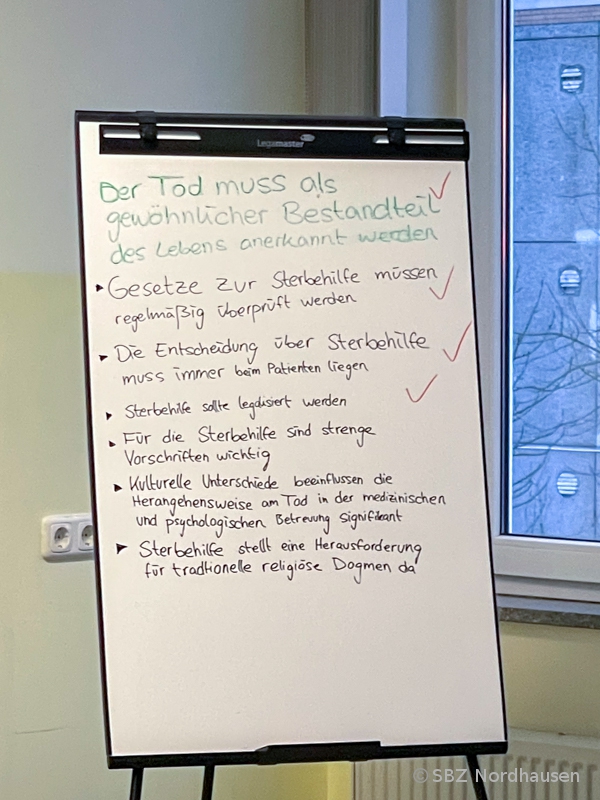 Legamaster
Der Tod muss als
gewöhnlicher Bestandteil
des Lebens anerkannt werden
▸ Gesetze zur Sterbehilfe müssen
regelmäßig überprüft werden
▸ Die Entscheidung über Sterbehilfe
muss immer beim Patienten liegen
▸ Sterbehilfe sollte legalisiert werden
▸ Für die Sterbehilfe sind strenge
Vorschriften wichtig
▸ Kulturelle Unterschiede beeinflussen die
Herangehensweise am Tod in der medizinischen
und psychologischen Betreuung signifikant
▸ Sterbehilfe stellt eine Herausforderung
für traditionelle religiöse Dogmen da
© SBZ Nordhausen